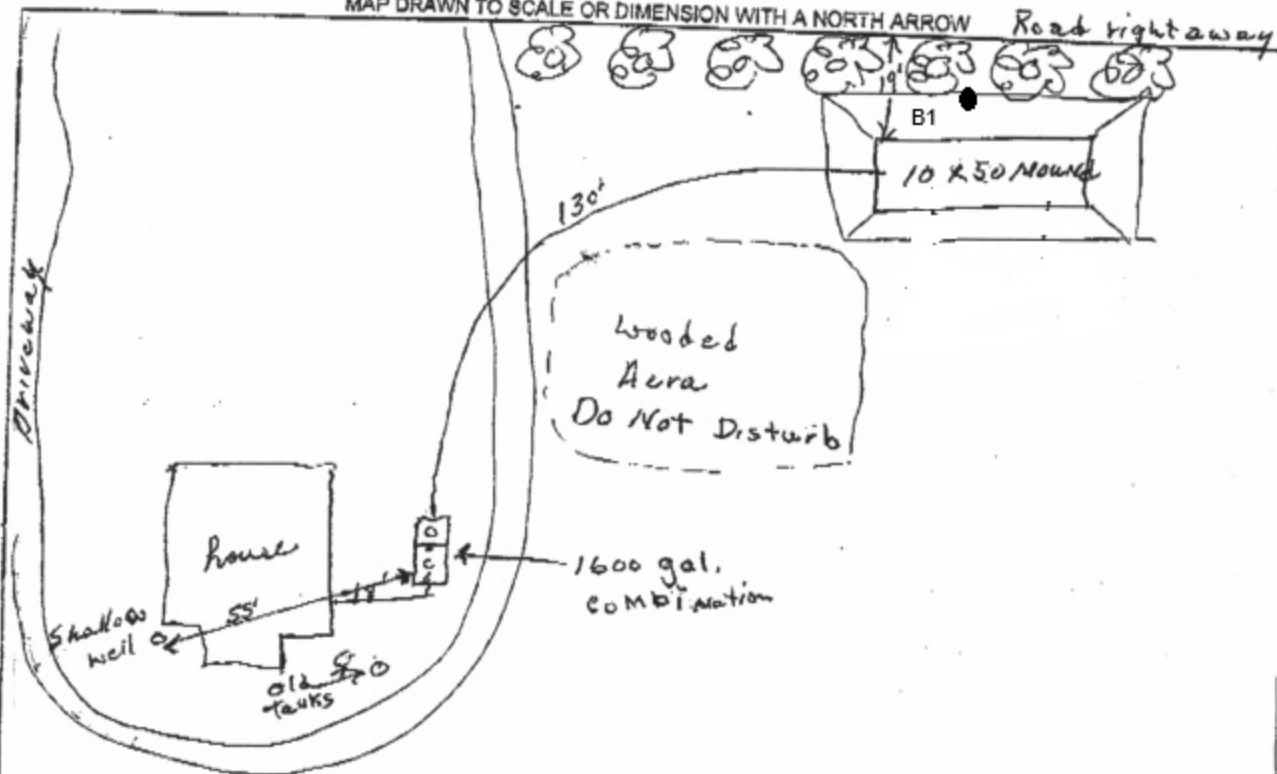 MAP DRAWN TO SCALE OR DIMENSION WITH A NORTH ARROW
Road right away
19'
B1
10 x 50 Mound
130'
Driveway
Wooded
Aera
Do Not Disturb
house
D
C
18'
1600 gal.
combination
55'
Shallow
well
old
tanks